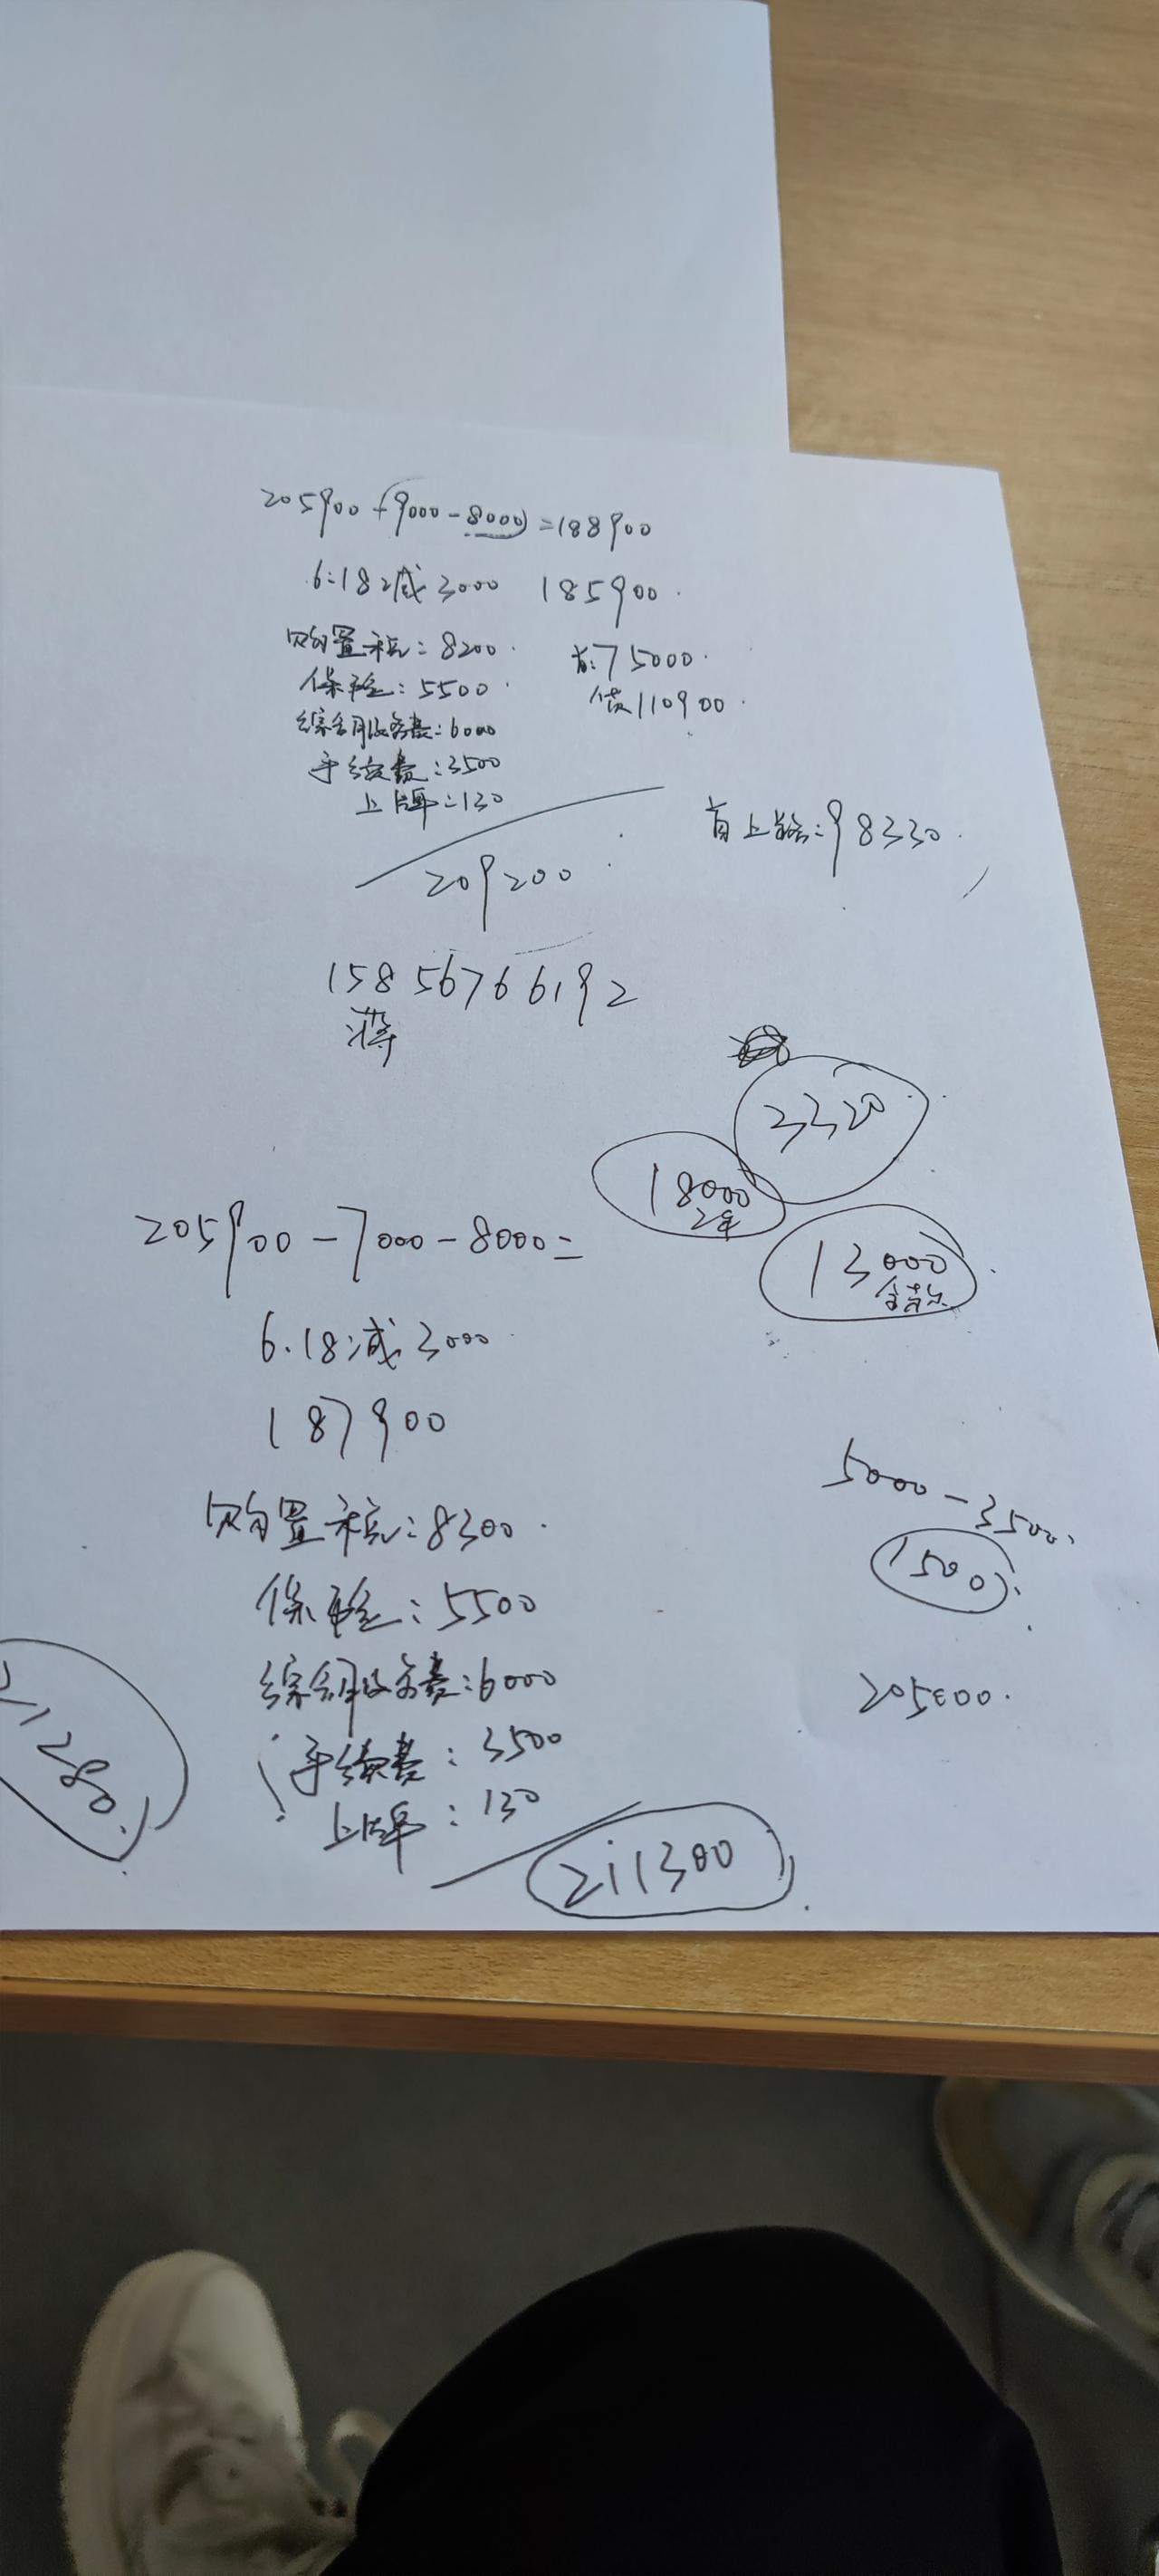 205900-(9000-8000)=188900
6.18减3000 185900.
购置税:8200. 首:75000.
保险:5500. 贷110900.
综合服务费:6000
手续费:3500
上牌:130
首上路:98330.
209200
15856766192
蒋
3320
18000
2年
13000
全款
205900-7000-8000=
6.18减3000
187900
5000-3500.
1500
购置税:8300.
保险:5500
综合服务费:6000
205800.
手续费:3500
上牌:130
21280
211300